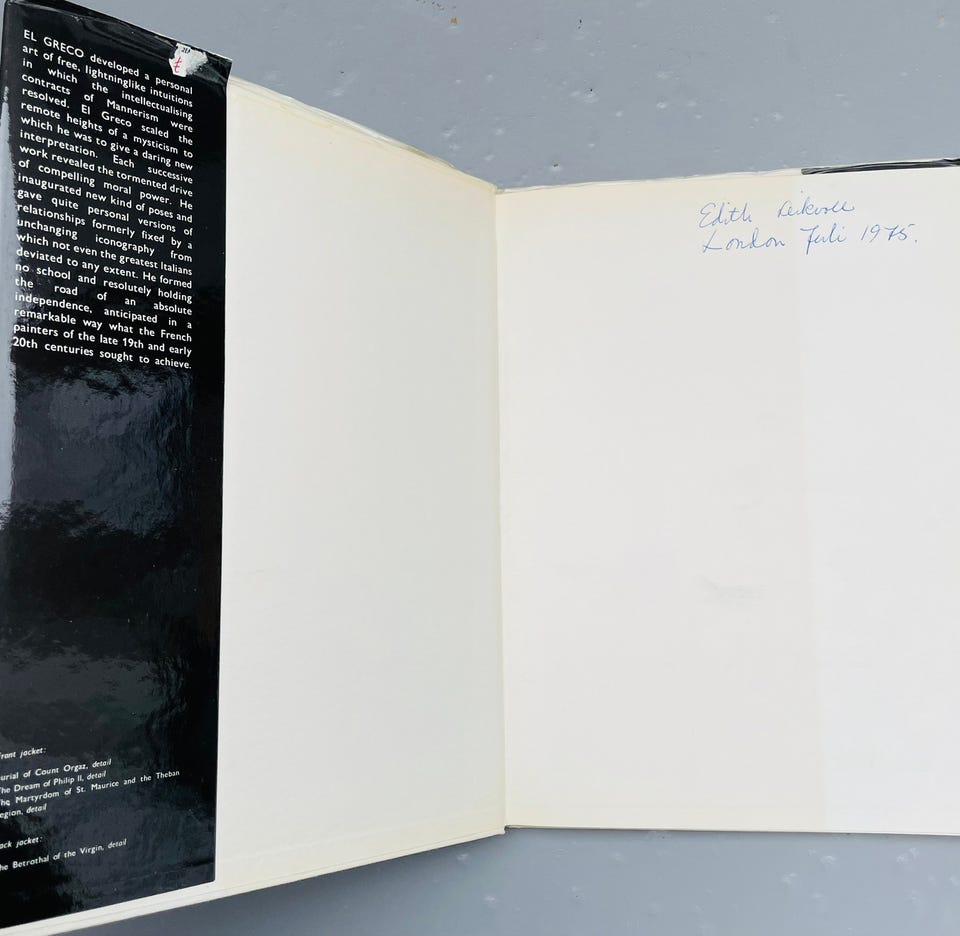 EL GRECO developed a personal
art of free, lightninglike intuitions
in which the intellectualising
contracts of Mannerism were
resolved. El Greco scaled the
remote heights of a mysticism to
which he was to give a daring new
interpretation. Each successive
work revealed the tormented drive
of compelling moral power. He
inaugurated new kind of poses and
gave quite personal versions of
relationships formerly fixed by a
unchanging iconography from
which not even the greatest Italians
deviated to any extent. He formed
no school and resolutely holding
the road of an absolute
independence, anticipated in a
remarkable way what the French
painters of the late 19th and early
20th centuries sought to achieve.
ront jacket:
urial of Count Orgaz, detail
he Dream of Philip II, detail
he Martyrdom of St. Maurice and the Theban
egion, detail
ack jacket:
he Betrothal of the Virgin, detail
Edith
London Juli 1975.